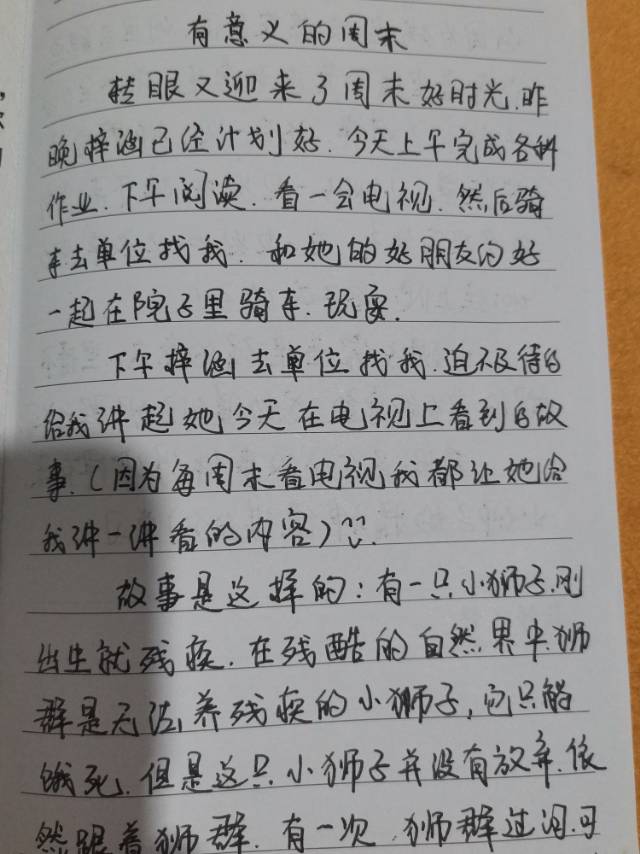 有意义的周末
转眼又迎来了周末好时光.昨
晚梓涵已经计划好.今天上午完成各科
作业.下午阅读.看一会电视.然后骑
车去单位找我.和她的好朋友的好
一起在院子里骑车.玩耍.
下午梓涵去单位找我.迫不及待的
给我讲起她今天在电视上看到的故
事.(因为每周末看电视我都让她给
我讲一讲看的内容)
故事是这样的:有一只小狮子.刚
出生就残疾.在残酷的自然界中.狮
群是无法养残疾的小狮子,它只能
饿死.但是这只小狮子并没有放弃.依
然跟着狮群.有一次.狮群过河.可